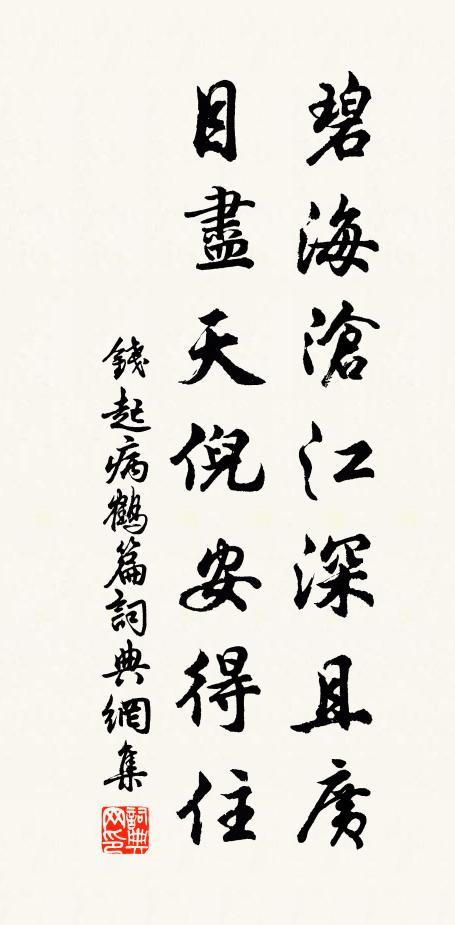 碧海滄江深且廣
目盡天倪安得住
錢起病鶴篇詞典網集
詞典網印